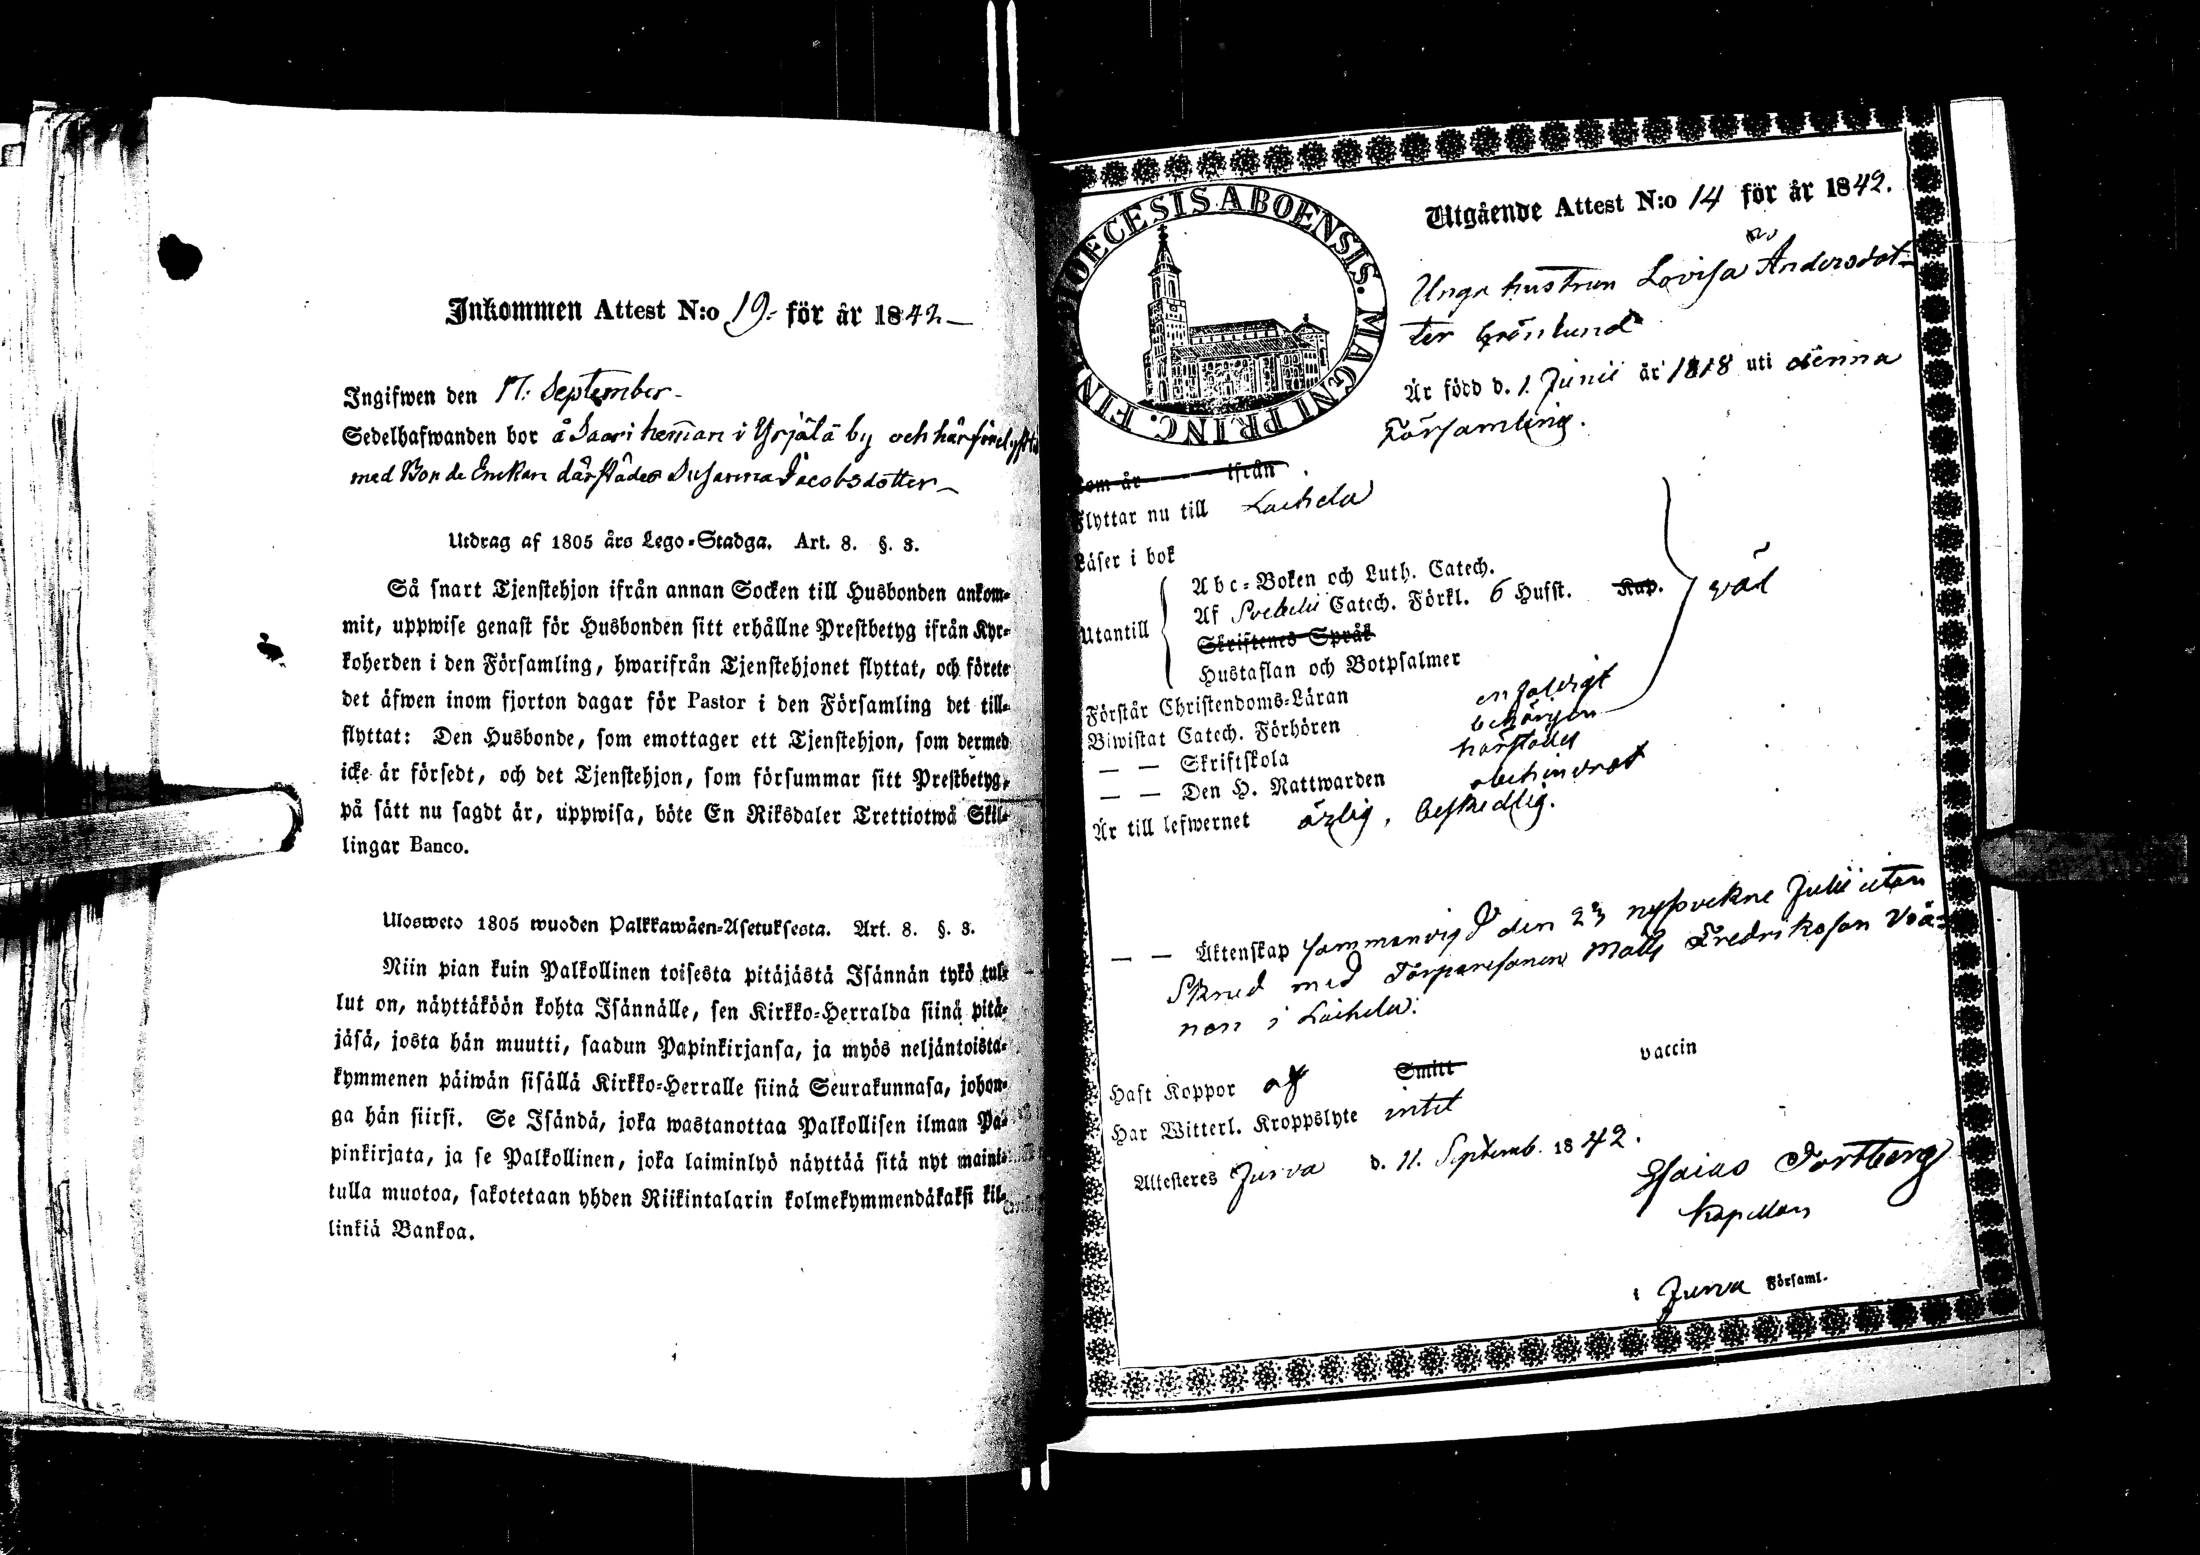 Inkommen Attest N:o 19. för år 1842
Ingifwen den 17. September
Sedelhafwanden bor å Saari heman i Yrjälä by och här
med Bonde Enckan därstädes Susanna Jacobsdotter
Utdrag af 1805 års Lego-Stadga. Art. 8. §. 3.
Så snart Tjenstehjon ifrån annan Socken till Husbonden ankom-
mit, uppwise genast för Husbonden sitt erhållne Prestbetyg ifrån Kyr-
koherden i den Församling, hwarifrån Tjenstehjonet flyttat, och förete
det äfwen inom fjorton dagar för Pastor i den Församling det till-
flyttat: Den Husbonde, som emottager ett Tjenstehjon, som dermed
icke är försedt, och det Tjenstehjon, som försummar sitt Prestbetyg,
på sätt nu sagdt är, uppwisa, böte En Riksdaler Trettiotwå Skil-
lingar Banco.
Ulosweto 1805 wuoden Palkkawäen-Asetuksesta. Art. 8. §. 3.
Niin pian kuin Palkollinen toisesta pitäjästä Isännän tykö tul-
lut on, näyttäköön kohta Isännälle, sen Kirkko-Herralda siinä pitä-
jäsä, josta hän muutti, saadun Papinkirjansa, ja myös neljäntoista-
kymmenen päiwän sisällä Kirkko-Herralle siinä Seurakunnasa, johon-
ga hän siirsi. Se Isändä, joka wastanottaa Palkollisen ilman Pa-
pinkirjata, ja se Palkollinen, joka laiminlyö näyttää sitä nyt maini-
tulla muotoa, sakotetaan yhden Riikintalarin kolmekymmendäkaksi kil-
linkiä Bankoa.
DIOECESIS ABOENSIS. MAGNI PRINC. FIN
Utgående Attest N:o 14 för år 1842.
Unga hustrun Lovisa Andersdot-
ter Grönlund
Är född d. 1 Junii år 1818 uti denna
Församling.
som år ifrån
Flyttar nu till Laihela
Läser i bok
Abc-Boken och Luth. Catech.
Utantill Af Svebelii Catech. Förkl. 6 Hufst. Kap. väl
Skriftenes Språk
Hustaflan och Botpsalmer
Förstår Christendoms-Läran enfaldigt
Biwistat Catech. Förhören behörigen
— — Skriftskola härstädes
— — Den H. Nattwarden obehindrat
Är till lefwernet ärlig, beskedlig.
— — Äktenskap sammanvigd den 23 nyssvekne Julii utan
Skrud med Torparesonen Matts Fredriksson
i Laihela.
Haft Koppor af Smitt vaccin
Har Witterl. Kroppslyte intet
Attesteres Jurva d. 11. Septemb. 1842.
Esaias Tortberg
Kapellan
i Jurva Församl.